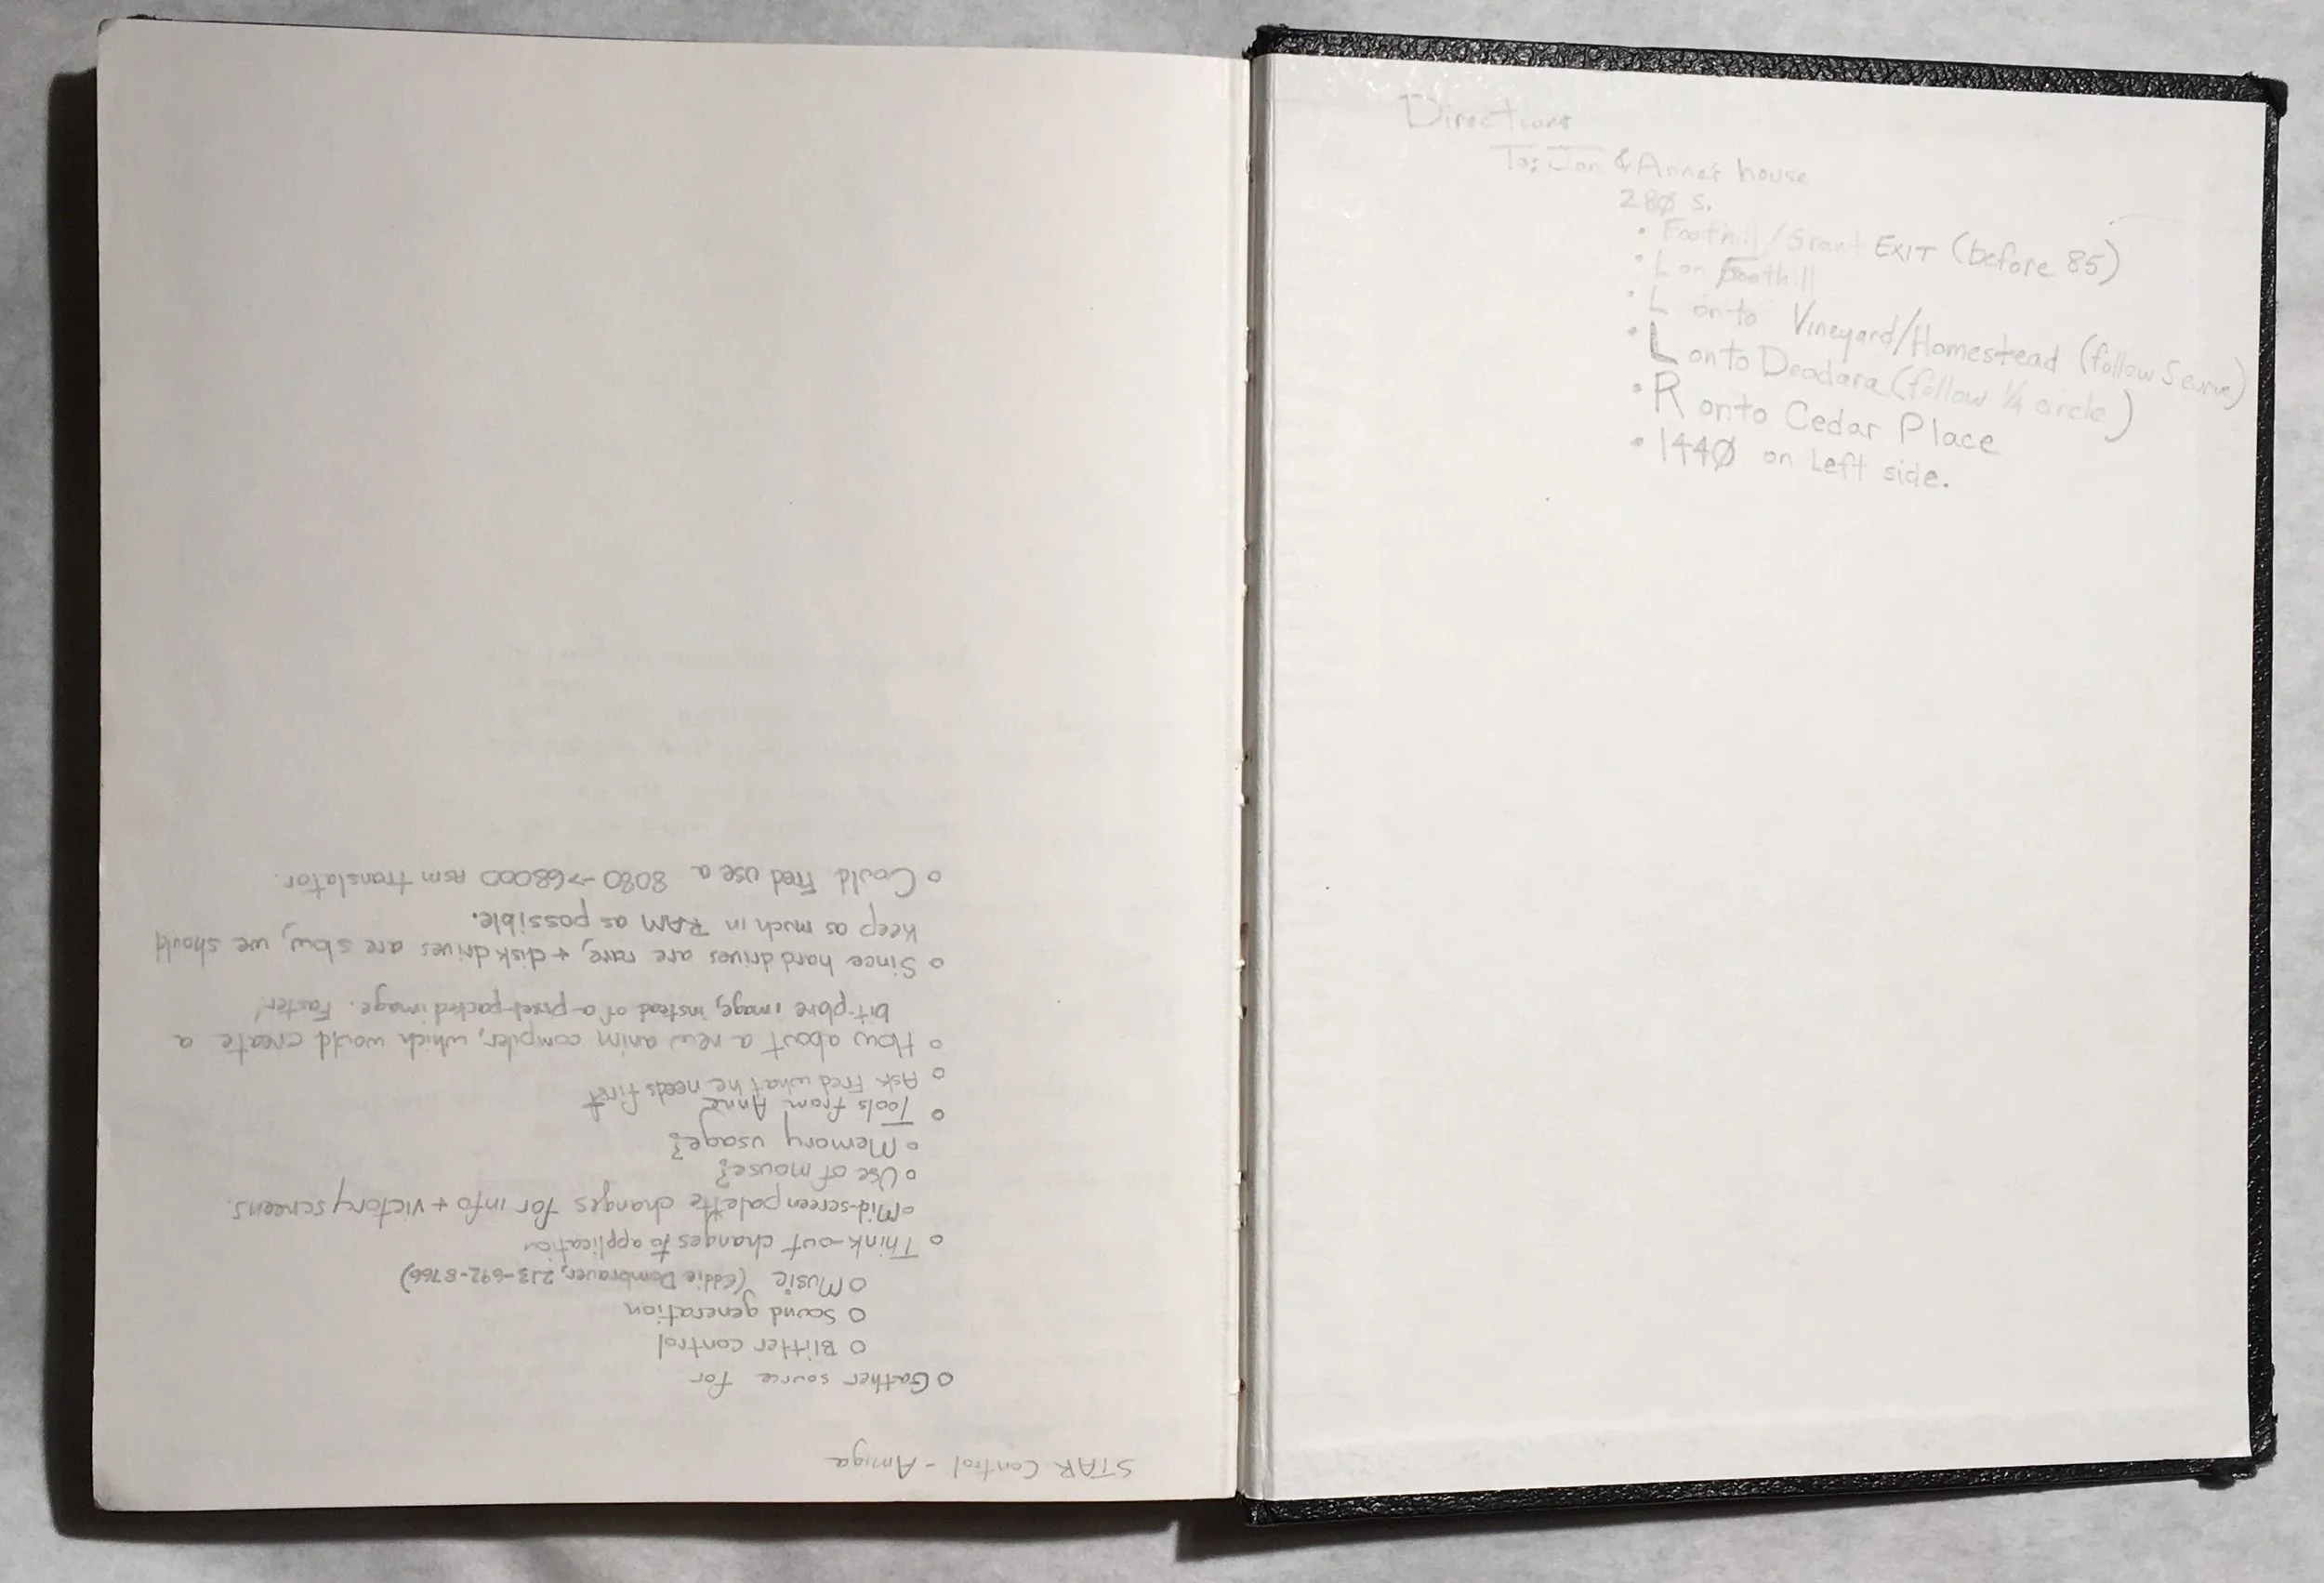 STAR Control - Amiga
o Gather source for
o Blitter control
o Sound generation
o Music (Eddie Dombrauer, 213-692-8766)
o Think-out changes to application
o Mid-screen palette changes for info + victory screens.
o Use of mouse?
o Memory usage?
o Tools from Anne
o Ask Fred what he needs first
o How about a new anim compiler, which would create a
bit-plane image, instead of a-pixel-packed image. Faster!
o Since hard drives are rare, + disk drives are slow, we should
keep as much in RAM as possible.
o Could Fred use a 8080->68000 ASM translator.
Directions
To: Jon & Anne's house
280 S.
• Foothill/Grant EXIT (before 85)
• L on Foothill
• L onto Vineyard/Homestead (follow S curve)
• L onto Deodara (follow 1/4 circle)
• R onto Cedar Place
• 1440 on Left side.